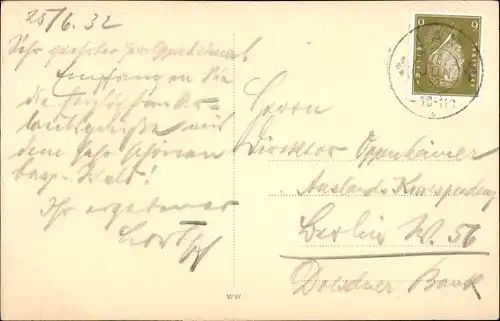 25/6.32
Sehr geehrter Herr Oppenheimer!
Empfangen Sie
die herzlichsten Ur-
laubsgrüße aus
dem sehr schönen
Wald!
Ihr ergebener
Herrn
Direktor Oppenheimer
Auslands-Korrespondenz
Berlin W. 56
Dresdner Bank
WW
9 9